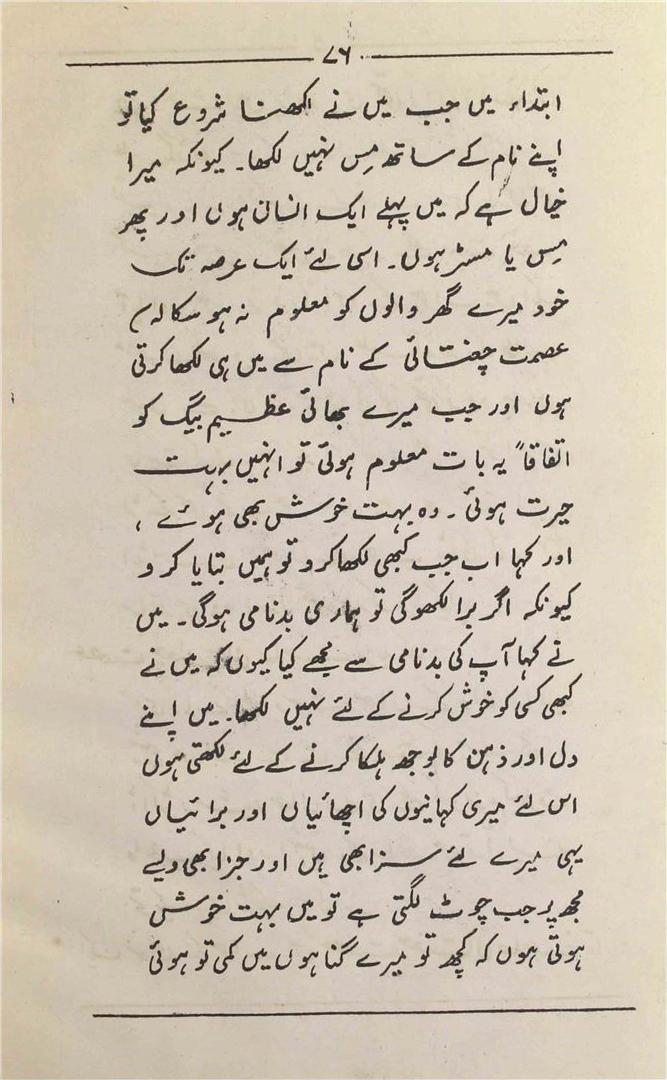 ۷۶
ابتداء میں جب میں نے لکھنا شروع کیا تو
اپنے نام کے ساتھ مِس نہیں لکھا۔ کیونکہ میرا
خیال ہے کہ میں پہلے ایک انسان ہوں اور پھر
مِس یا مسٹر ہوں۔ اسی لئے ایک عرصہ تک
خود میرے گھر والوں کو معلوم نہ ہو سکا کہ
عصمت چغتائی کے نام سے میں ہی لکھا کرتی
ہوں اور جب میرے بھائی عظیم بیگ کو
اتفاقاً یہ بات معلوم ہوئی تو انہیں بہت
حیرت ہوئی۔ وہ بہت خوش بھی ہوئے،
اور کہا اب جب کبھی لکھا کرو تو ہمیں بتایا کرو
کیونکہ اگر برا لکھوگی تو ہماری بدنامی ہوگی۔ میں
نے کہا آپ کی بدنامی سے مجھے کیا کیوں کہ میں نے
کبھی کسی کو خوش کرنے کے لئے نہیں لکھا۔ میں اپنے
دل اور ذہن کا بوجھ ہلکا کرنے کے لئے لکھتی ہوں
اس لئے میری کہانیوں کی اچھائیاں اور برائیاں
یہی میرے لئے سزا بھی ہیں اور جزا بھی ویسے
مجھ پر جب چوٹ لگتی ہے تو میں بہت خوش
ہوتی ہوں کہ کچھ تو میرے گناہوں میں کمی تو ہوئی